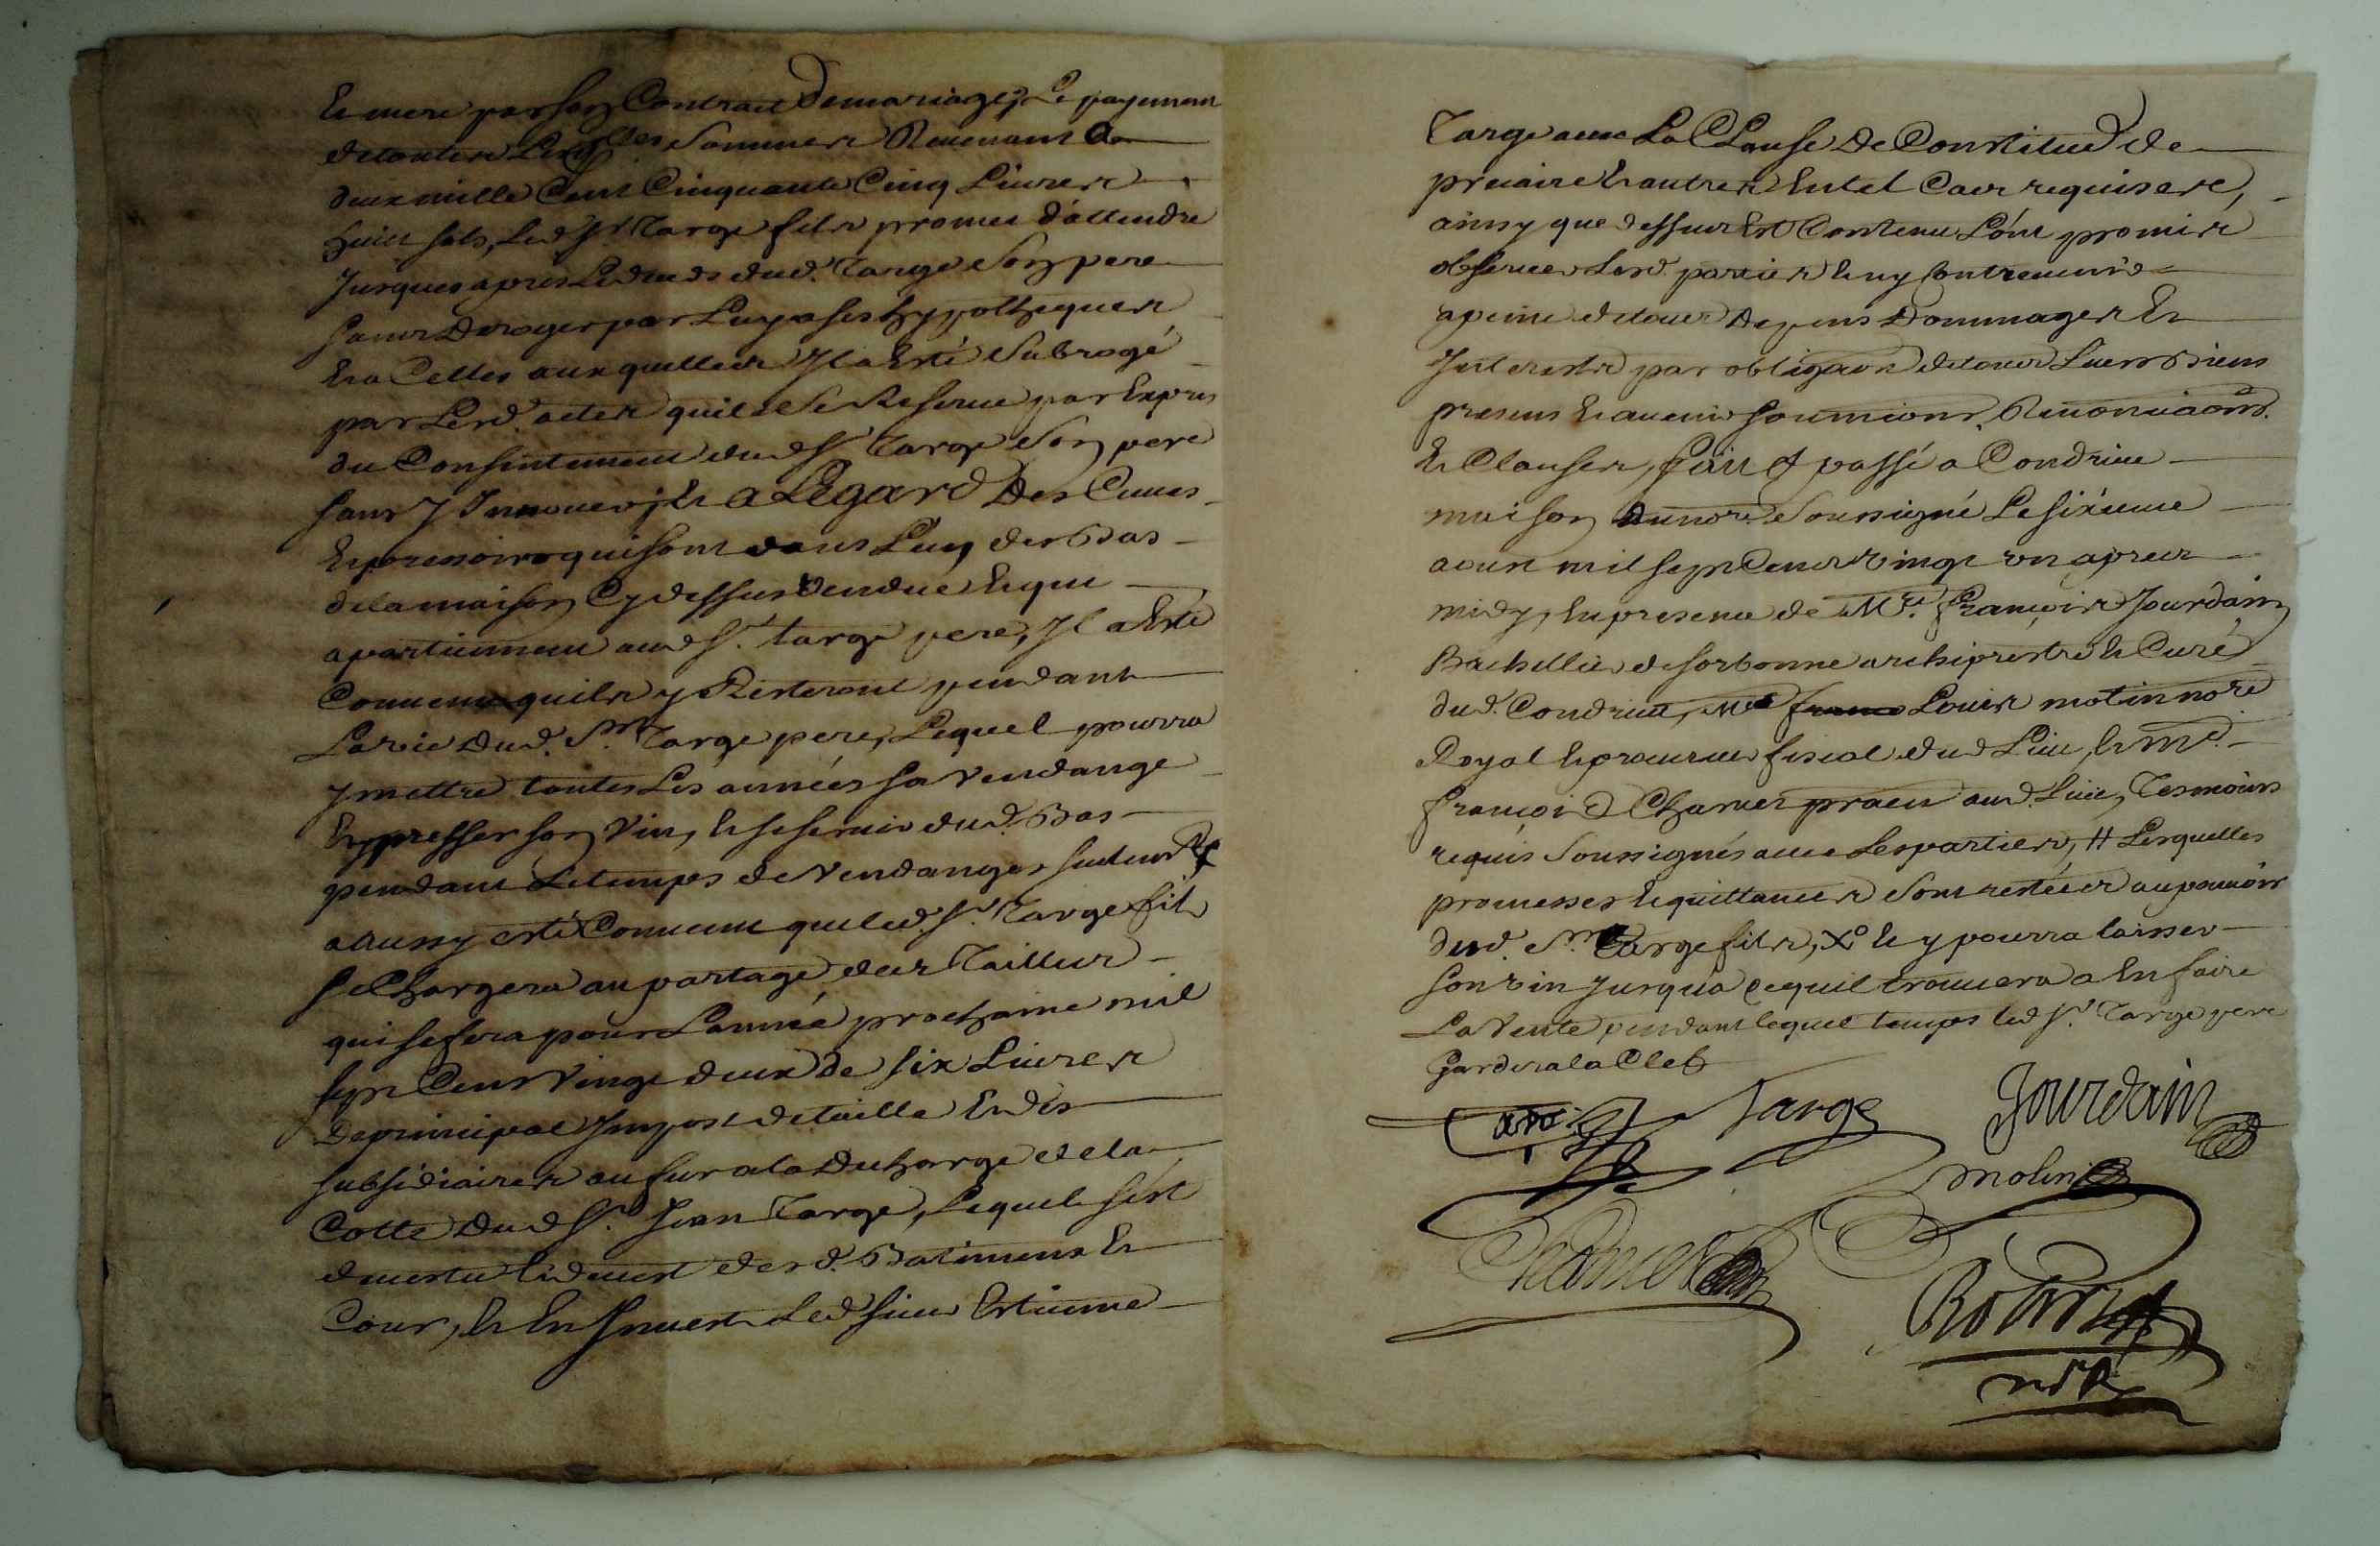 Et mere par son Contract de mariage, Le payement
de toutes Lesqlles Sommes Revenant a
deux mille Cent Cinquante Cinq Livres
huict sols, Led. Sr. Targe fils promet d'attendre
Jusques apres Le deceds dud. Targe Son pere
sans deroger par Luy a ses hypotheques
Et a Celles auxquelles Jl a Esté Subrogé
par Lesd. actes quil Se Reserve par Expres
du Consentement dud. Sr. Targe Son pere
sans J Innover, Et a L'Egard Des Cuves
Et pressoir qui sont dans L'un des Bas
de la maison Cy dessus Vendue Et qui
apartiennent aud. Sr. targe pere, Jl a Esté
Convenu quils y Resteront pendant
La vie Dud. Sr. Targe pere, Lequel pourra
y mettre toutes Les années sa Vendange
Et presser son Vin, Et se servir dud. Bas
pendant Le temps de Vendanges seulement
a aussy esté Convenu que led. Sr. Targe fils
se Chargera au partage des Tailles
qui se fera pour L'année prochaine mil
sept Cent Vingt deux de six Livres
De principal Jmpost de taille Et des
subsidiaires au fur a la Decharge de la
Cotte Dud. Sr. Jean Targe, Lequel s'est
devestu Et devest desd. Batimens Et
Cour, Et En Jnvest Led. sieur Estienne
Targe avec La Clause De Constitut de
precaire Et autres En tel Cas requises,
ainsy que dessus Est Contenu L'ont promis
observer Lesd. parties Et ny Contrevenir
a peine de tous Depens Dommages Et
Jnterests par obligaon de tous Leurs Biens
presens Et avenir soumions. Renonciaons.
Et Clauses, fait & passé a Condrieu
maison du nore. Soussigné Le sixieme
aoust mil sept Cent Vingt un apres
midy, En presence de Mre. François Jourdain
Bachellier de sorbonne archiprestre Et Curé
dud. Condrieu, Me Louis molin nore.
Royal Et procureur fiscal dud. Lieu, Et Me.
françois Charvet praen aud. Lieu, Tesmoins
requis Soussignés avec Les parties, # Lesquelles
promesses Et quittances Sont restées au pouvoir
dud. Sr. Targe fils, X° Et y pourra laisser
son vin Jusqua ce quil trouvera a En faire
La Vente pendant lequel temps led. Sr. Targe pere
Gardera la Clef
Targe
Jourdain
molin
Charvet
nre